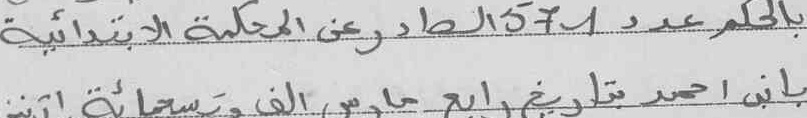 بالحكم عدد 571 الصادر عن المحكمة الابتدائية
بابن احمد بتاريخ رابع مارس الف وتسعمائة